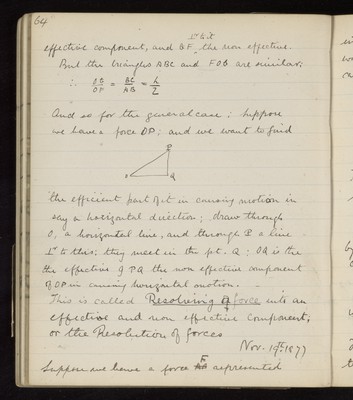 64
⊥r to it
effective component, and BF the non effective.
But the triangles ABC and FOB are similar;
∴ OB/OF = BC/AB = h/l
And so for the general case; suppose
we have a force OP; and we want to find
P
O Q
the efficient part of it in causing motion in
say a horizontal direction; draw through
O, a horizontal line, and through P a line
⊥r to this; they meet in the pt. Q; OQ is the
the effective & PQ the non effective component
of OP in causing horizontal motion.
This is called Resolving a force into an
effective and non effective component,
or the Resolution of forces
Nov. 1877
Suppose we have a force represented